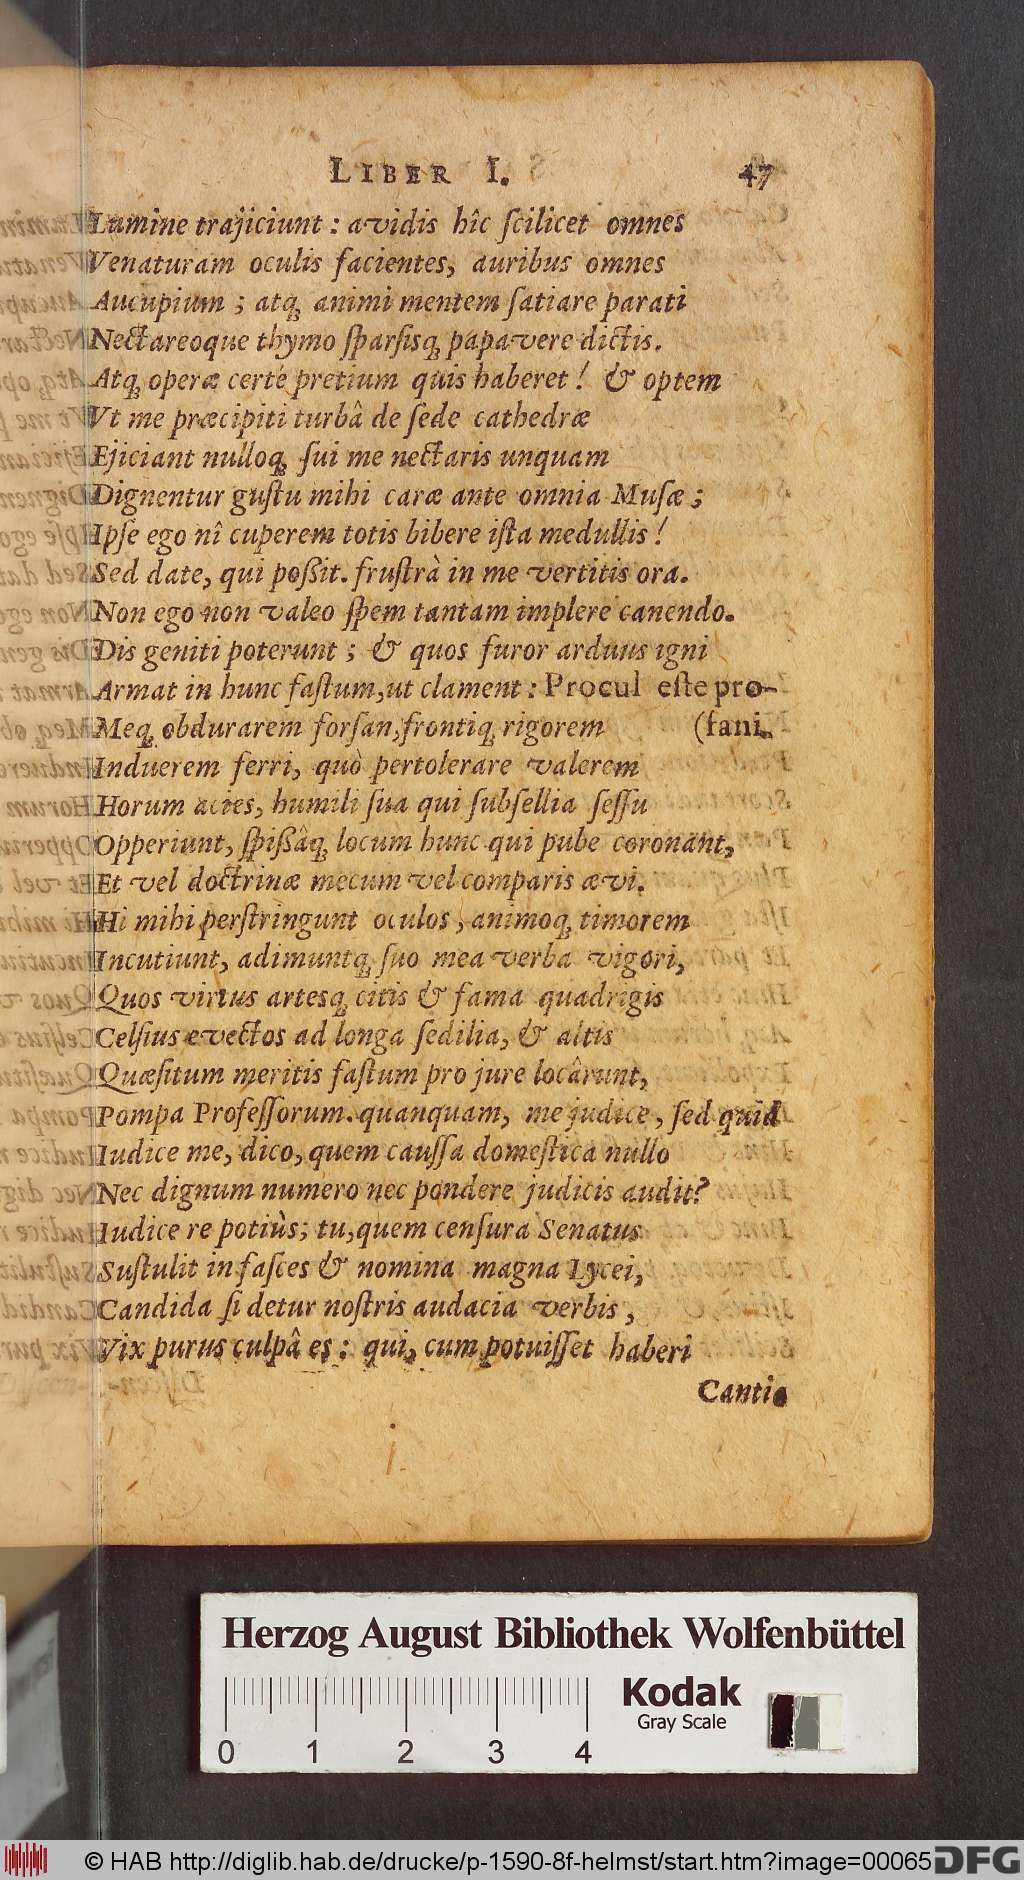 LIBER I. 47
Lumine trajiciunt : avidis hîc ſcilicet omnes
Venaturam oculis facientes, auribus omnes
Aucupium ; atq; animi mentem ſatiare parati
Nectareoque thymo ſparſisq; papavere dictis.
Atq; operæ certè pretium quis haberet ! & optem
Vt me præcipiti turbâ de ſede cathedræ
Ejiciant nulloq; ſui me nectaris unquam
Dignentur guſtu mihi caræ ante omnia Muſæ ;
Ipſe ego nî cuperem totis bibere iſta medullis !
Sed date, qui poßit. fruſtrà in me vertitis ora.
Non ego non valeo ſpem tantam implere canendo.
Dis geniti poterunt ; & quos furor arduus igni
Armat in hunc faſtum, ut clament : Procul eſte pro-
Meq; obdurarem forſan, frontiq; rigorem (fani.
Induerem ferri, quò pertolerare valerem
Horum acies, humili ſua qui ſubſellia ſeſſu
Opperiunt, ſpißâq; locum hunc qui pube coronant,
Et vel doctrinæ mecum vel comparis ævi.
Hi mihi perſtringunt oculos, animoq; timorem
Incutiunt, adimuntq; ſuo mea verba vigori,
Quos virtus artesq; citis & fama quadrigis
Celſius evectos ad longa ſedilia, & altis
Quæſitum meritis faſtum pro jure locârunt,
Pompa Profeſſorum. quanquam, me judice, ſed quid
Iudice me, dico, quem cauſſa domeſtica nullo
Nec dignum numero nec pondere judicis audit?
Iudice re potiùs; tu, quem cenſura Senatus
Suſtulit in faſces & nomina magna Lycei,
Candida ſi detur noſtris audacia verbis,
Vix purus culpâ es : qui, cum potuiſſet haberi
Canti-
Herzog August Bibliothek Wolfenbüttel
Kodak
Gray Scale
0 1 2 3 4
© HAB http://diglib.hab.de/drucke/p-1590-8f-helmst/start.htm?image=00065
DFG